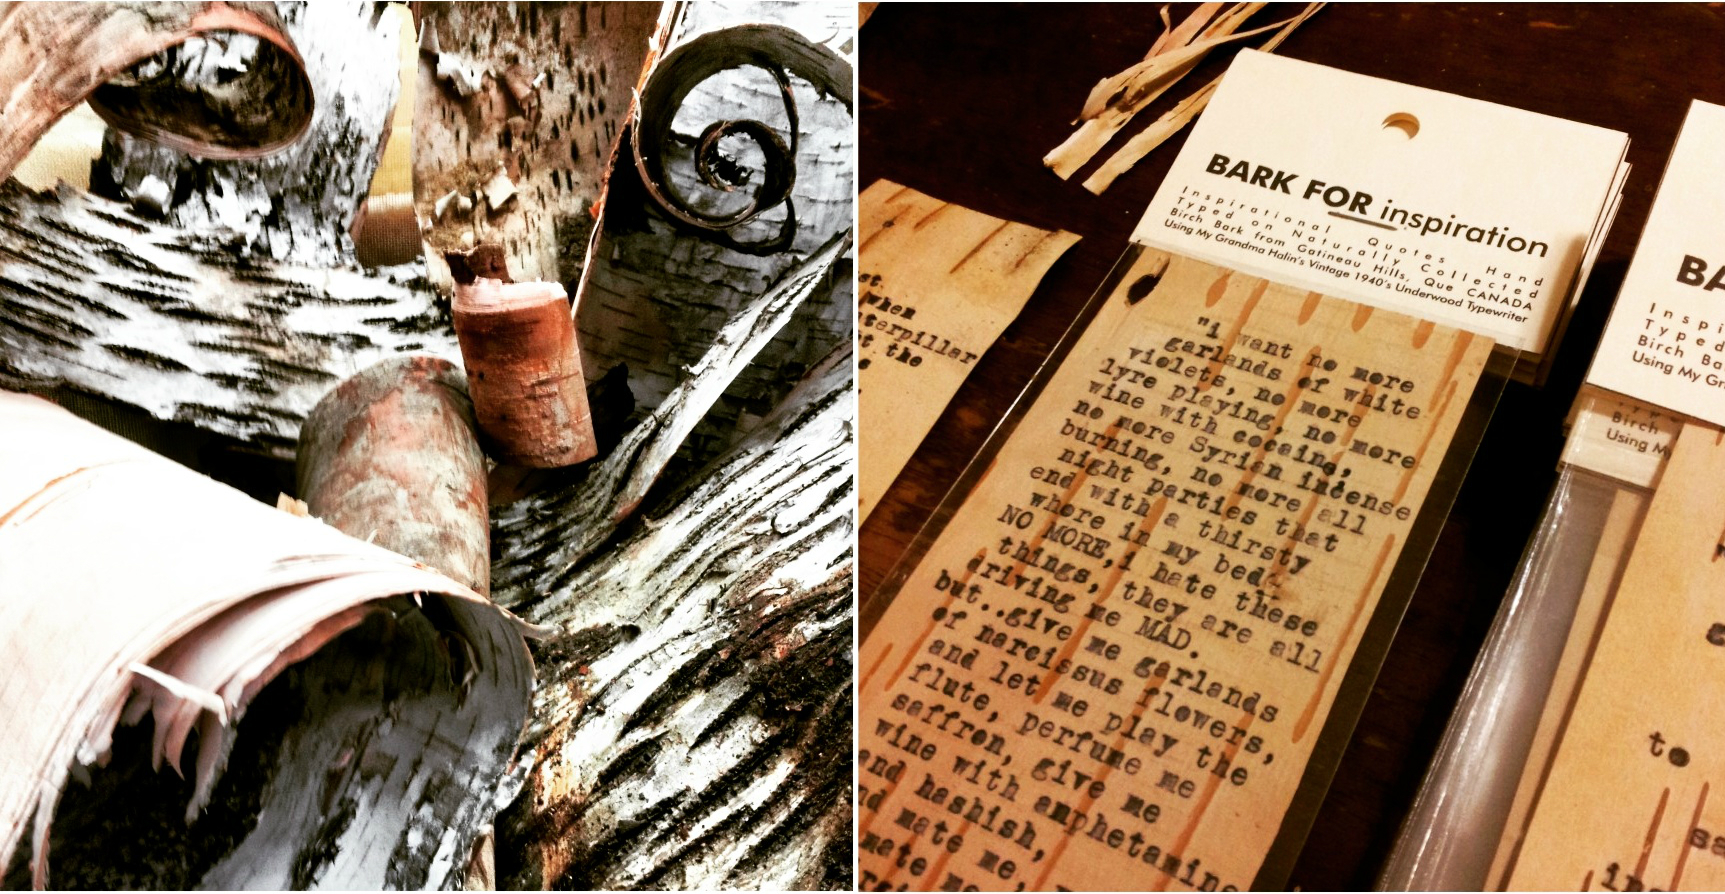 BARK FOR inspiration
Inspirational Quotes Hand
Typed on Naturally Collected
Birch Bark from Gatineau Hills, Que CANADA
Using My Grandma Halin's Vintage 1940's Underwood Typewriter
"i want no more
garlands of white
violets, no more
lyre playing, no more
wine with cocaine,
no more Syrian incense
burning, no more all
night parties that
end with a thirsty
whore in my bed
NO MORE, i hate these
things, they are all
driving me MAD.
but..give me garlands
of narcissus flowers,
and let me play the
flute, perfume me
saffron, give me
wine with amphetamine
and hashish,
mate me,
mate me
when
the
BA
Inspi
Typed
Birch Ba
Using My Gr
Birch
Using M
to
in